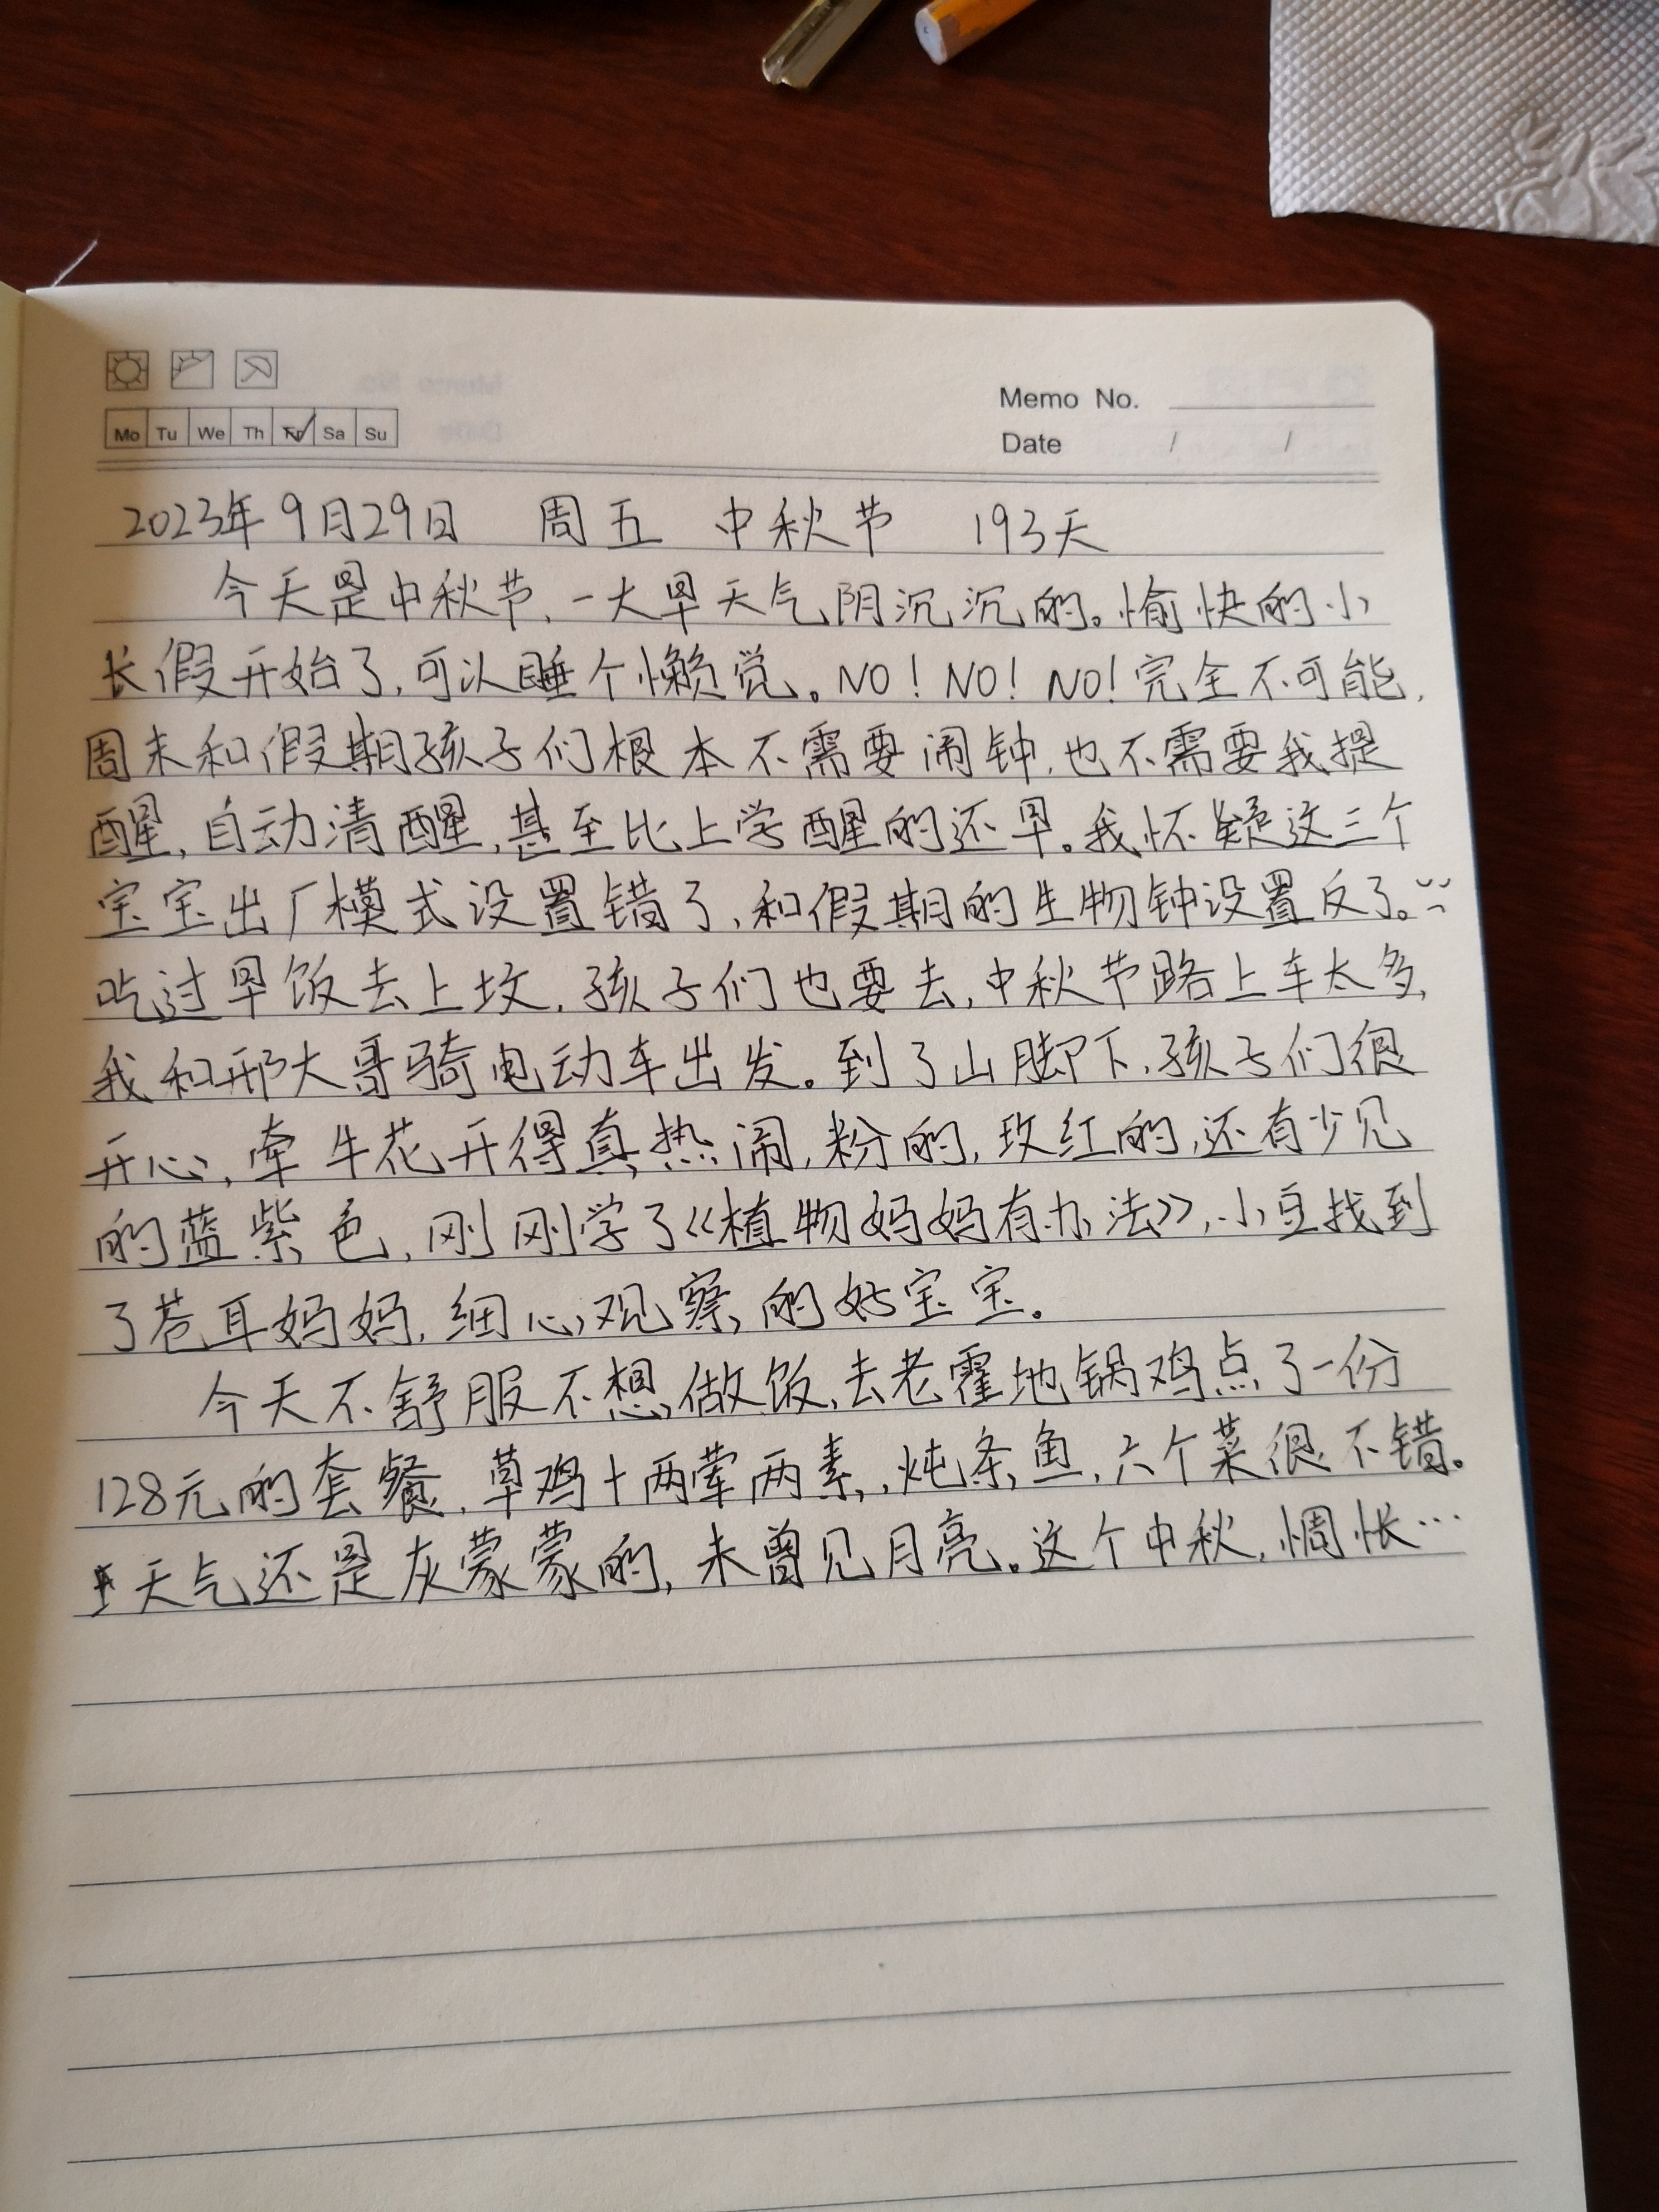 Memo No.
Mo Tu We Th Fr Sa Su
Date / /
2023年9月29日 周五 中秋节 193天
今天是中秋节，一大早天气阴沉沉的。愉快的小
长假开始了，可以睡个懒觉。NO！NO！NO！完全不可能，
周末和假期孩子们根本不需要闹钟，也不需要我提
醒，自动清醒，甚至比上学醒的还早。我怀疑这三个
宝宝出厂模式设置错了，和假期的生物钟设置反了。
吃过早饭去上坟，孩子们也要去，中秋节路上车太多，
我和邢大哥骑电动车出发。到了山脚下，孩子们很
开心，牵牛花开得真热闹，粉的，玫红的，还有少见
的蓝紫色，刚刚学了《植物妈妈有办法》，小豆找到
了苍耳妈妈，细心观察的好宝宝。
今天不舒服不想做饭，去老霍地锅鸡点了一份
128元的套餐，草鸡+两荤两素，炖条鱼，六个菜很不错。
天气还是灰蒙蒙的，未曾见月亮。这个中秋，惆怅…